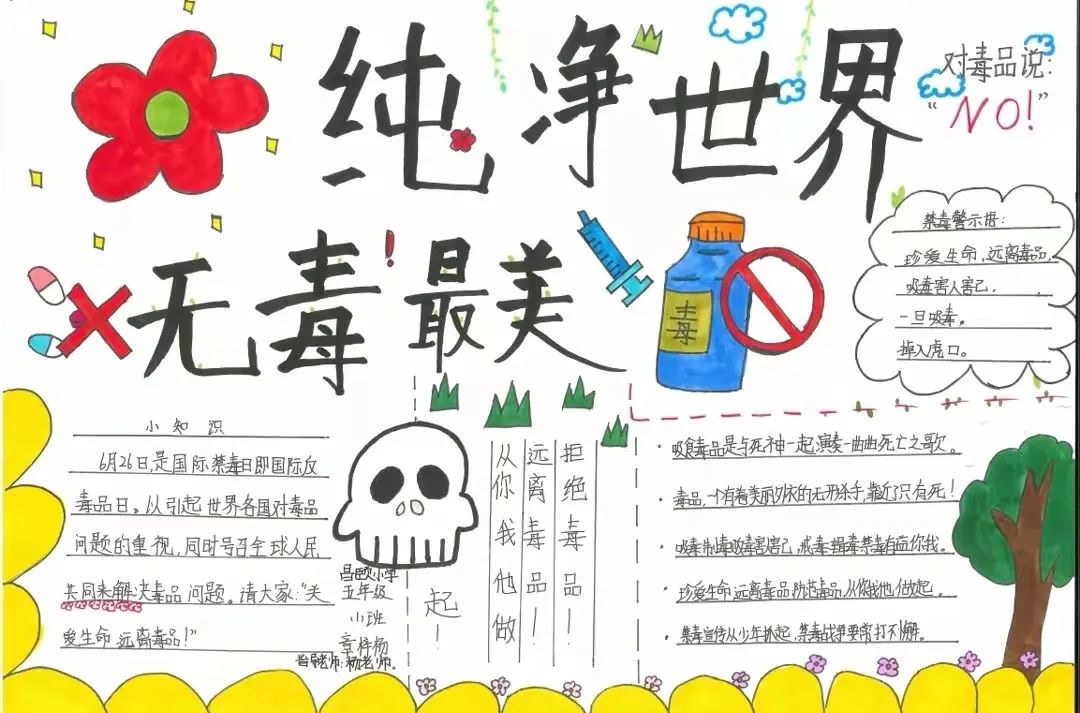 纯净世界
对毒品说:
“NO!”
无毒!最美
毒
禁毒警示语:
珍爱生命,远离毒品,
吸毒害人害己,
一旦吸毒,
掉入虎口。
小知识
6月26日,是国际禁毒日即国际反
毒品日,以引起世界各国对毒品
问题的重视,同时号召全球人民
共同来解决毒品问题。请大家:“关
爱生命 远离毒品!”
昌颐小学
五年级
小班
章梓杨
指导老师:杨老师.
拒绝毒品!
远离毒品!
从你我他做
起!
·吸食毒品是与死神一起演奏一曲曲死亡之歌。
·毒品,一个有着美丽外衣的无形杀手,靠近了只有死!
·吸毒制毒吸毒害害己,戒毒缉毒禁毒有益你我。
·珍爱生命,远离毒品,防范毒品,从你我他做起.
·禁毒宣传从少年抓起,禁毒战争要常打不懈。